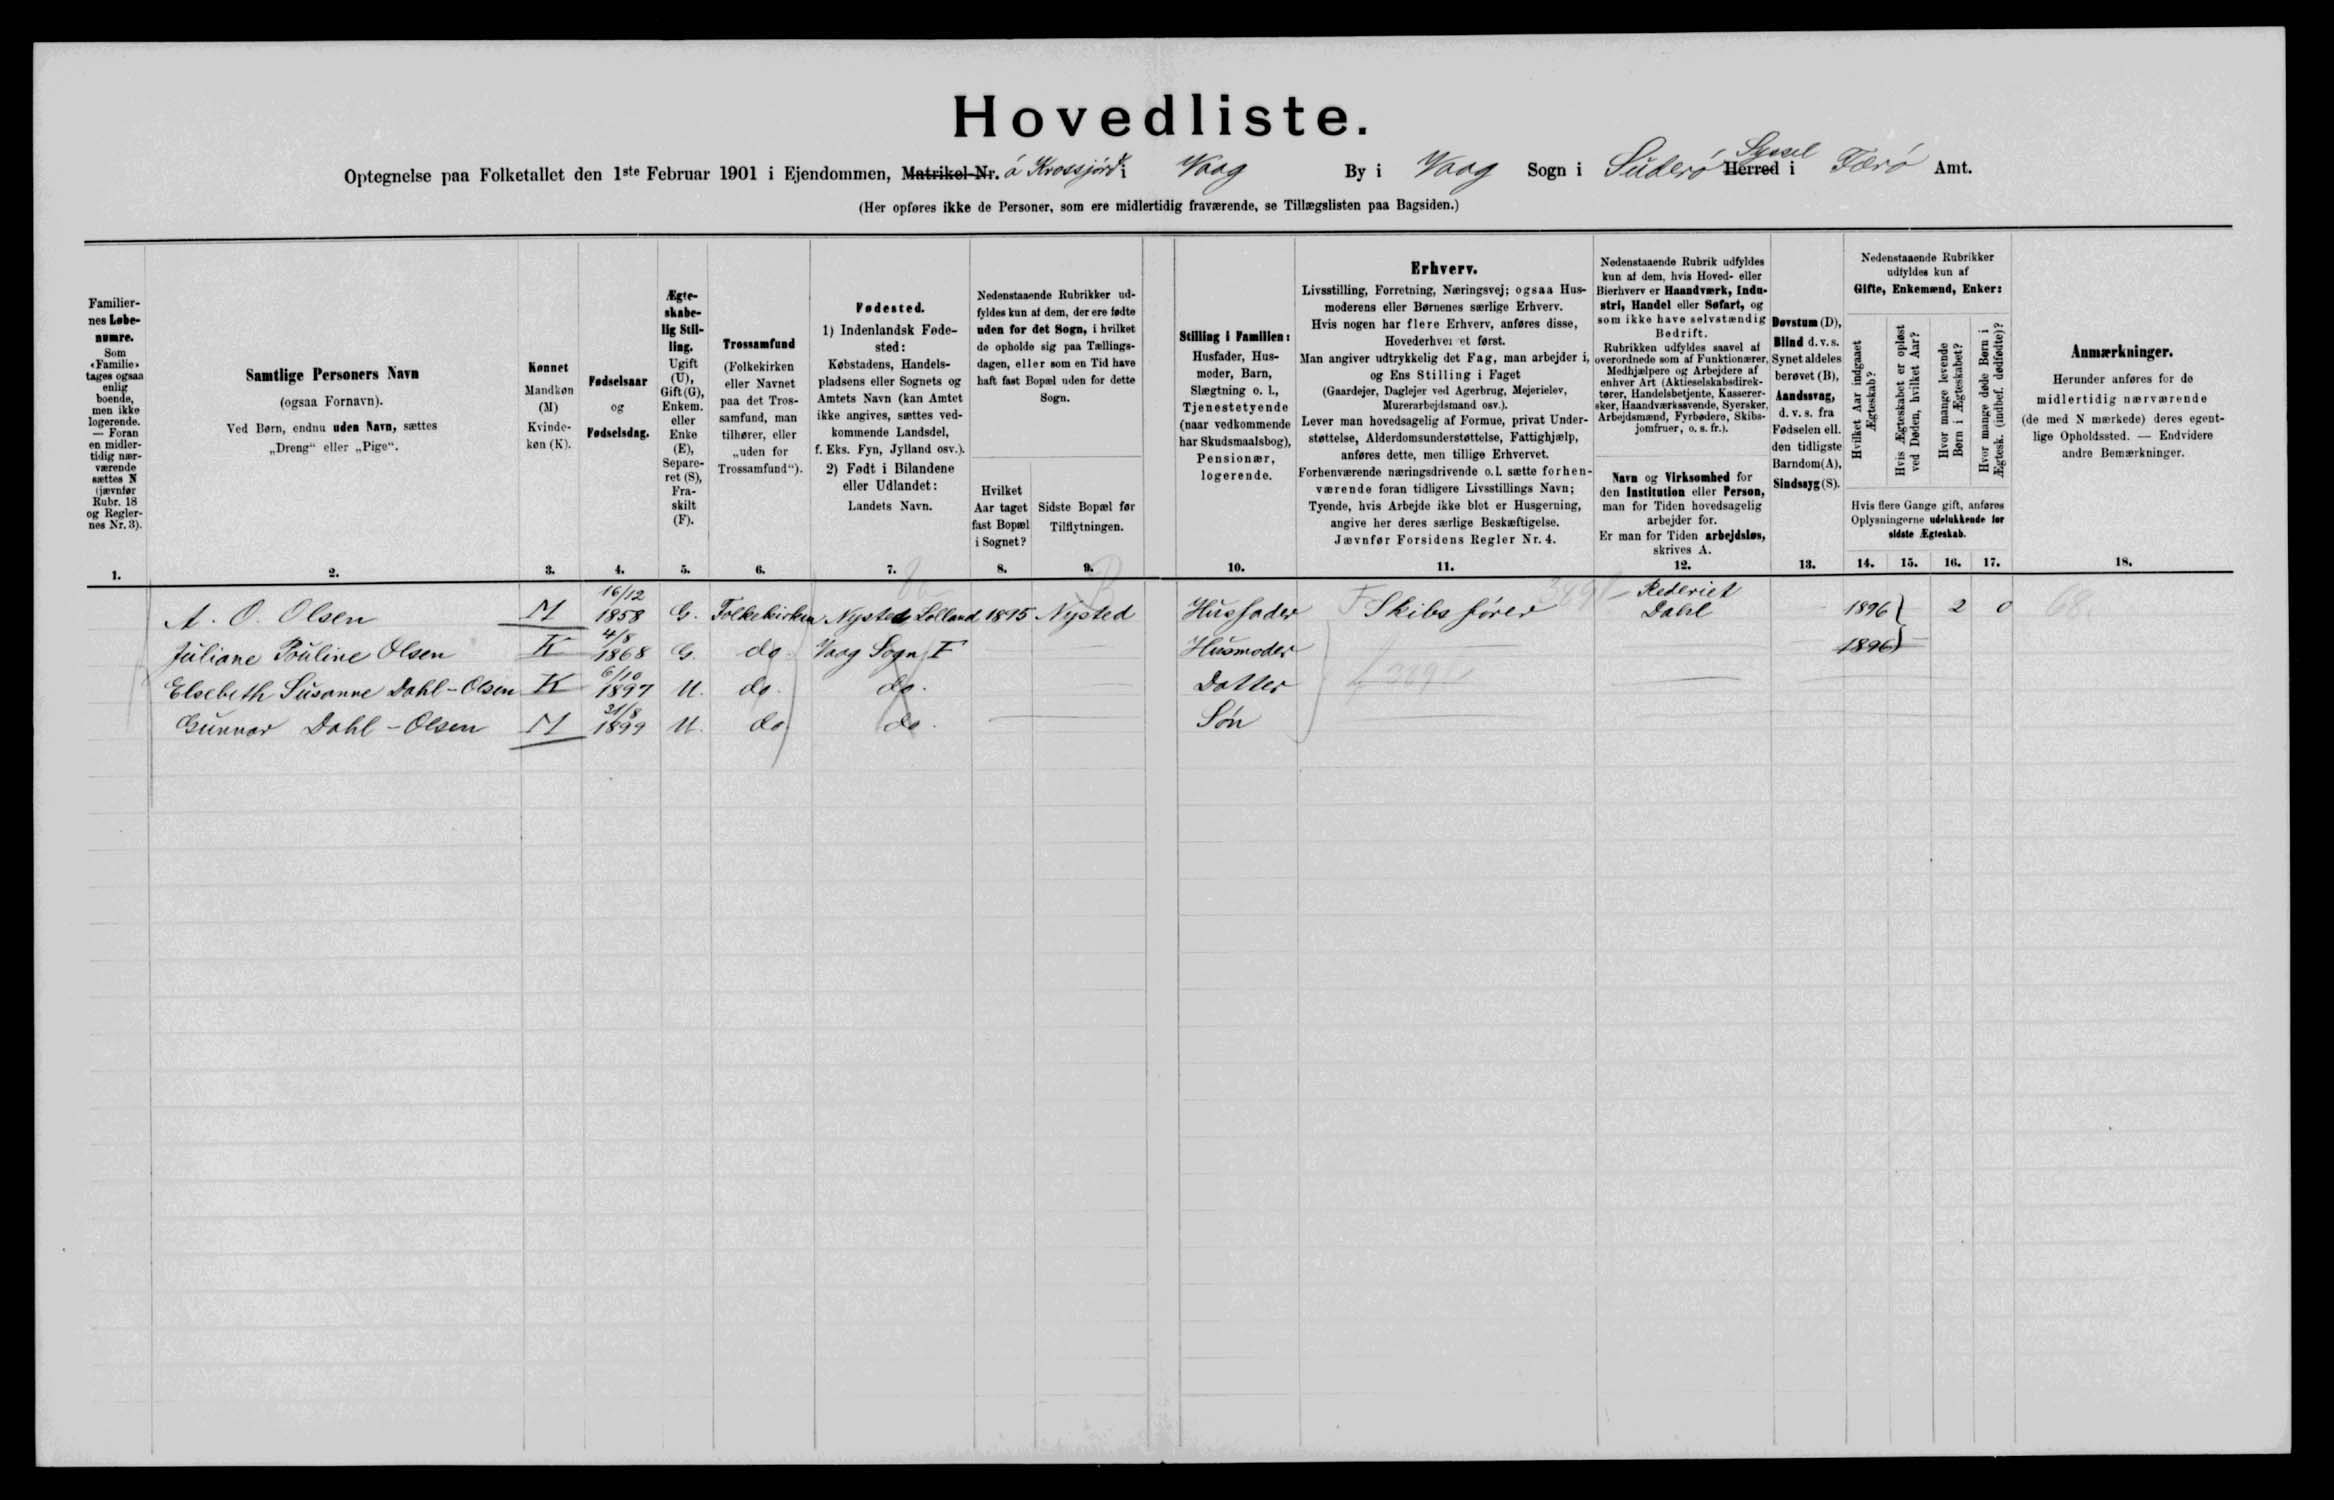 Hovedliste.
Optegnelse paa Folketallet den 1ste Februar 1901 i Ejendommen, Matrikel-Nr. á Krossjórd i Vaag By i Vaag Sogn i Suderó Herred Syssel i Færó Amt.
(Her opføres ikke de Personer, som ere midlertidig fraværende, se Tillægslisten paa Bagsiden.)
Familiernes Løbenumre.
Som «Familie» tages ogsaa enlig boende, men ikke logerende. — Foran en midlertidig nærværende sættes N (jævnfør Rubr. 18 og Reglernes Nr. 3).
Samtlige Personers Navn
(ogsaa Fornavn).
Ved Børn, endnu uden Navn, sættes
„Dreng“ eller „Pige“.
Kønnet
Mandkøn (M)
Kvindekøn (K).
Fødselsaar
og
Fødselsdag.
Ægteskabelig Stilling.
Ugift (U), Gift (G), Enkem. eller Enke (E), Separeret (S), Fraskilt (F).
Trossamfund
(Folkekirken eller Navnet paa det Trossamfund, man tilhører, eller „uden for Trossamfund“).
Fødested.
1) Indenlandsk Fødested:
Købstadens, Handelspladsens eller Sognets og Amtets Navn (kan Amtet ikke angives, sættes vedkommende Landsdel, f. Eks. Fyn, Jylland osv.).
2) Født i Bilandene eller Udlandet:
Landets Navn.
Nedenstaaende Rubrikker udfyldes kun af dem, der ere fødte uden for det Sogn, i hvilket de opholde sig paa Tællingsdagen, eller som en Tid have haft fast Bopæl uden for dette Sogn.
Hvilket Aar taget fast Bopæl i Sognet?
Sidste Bopæl før Tilflytningen.
Stilling i Familien:
Husfader, Husmoder, Barn, Slægtning o. l., Tjenestetyende (naar vedkommende har Skudsmaalsbog), Pensionær, logerende.
Erhverv.
Livsstilling, Forretning, Næringsvej; ogsaa Husmoderens eller Børnenes særlige Erhverv.
Hvis nogen har flere Erhverv, anføres disse, Hovederhvervet først.
Man angiver udtrykkelig det Fag, man arbejder i, og Ens Stilling i Faget
(Gaardejer, Daglejer ved Agerbrug, Mejerielev, Murerarbejdsmand osv.).
Lever man hovedsagelig af Formue, privat Understøttelse, Alderdomsunderstøttelse, Fattighjælp, anføres dette, men tillige Erhvervet.
Forhenværende næringsdrivende o. l. sætte forhenværende foran tidligere Livsstillings Navn;
Tyende, hvis Arbejde ikke blot er Husgerning, angive her deres særlige Beskæftigelse.
Jævnfør Forsidens Regler Nr. 4.
Nedenstaaende Rubrik udfyldes kun af dem, hvis Hoved- eller Bierhverv er Haandværk, Industri, Handel eller Søfart, og som ikke have selvstændig Bedrift.
Rubrikken udfyldes saavel af overordnede som af Funktionærer, Medhjælpere og Arbejdere af enhver Art (Aktieselskabsdirektører, Handelsbetjente, Kassererer­sker, Haandværkssvende, Syersker, Arbejdsmænd, Fyrbødere, Skibsjomfruer, o. s. fr.).
Navn og Virksomhed for den Institution eller Person, man for Tiden hovedsagelig arbejder for.
Er man for Tiden arbejdsløs, skrives A.
Døvstum (D), Blind d. v. s. Synet aldeles berøvet (B), Aandssvag, d. v. s. fra Fødselen ell. den tidligste Barndom (A), Sindssyg (S).
Nedenstaaende Rubrikker udfyldes kun af
Gifte, Enkemænd, Enker:
Hvilket Aar indgaaet Ægteskab?
Hvis Ægteskabet er opløst ved Døden, hvilket Aar?
Hvor mange levende Børn i Ægteskabet?
Hvor mange døde Børn i Ægtesk. (indbef. dødfødte)?
Hvis flere Gange gift, anføres Oplysningerne udelukkende for sidste Ægteskab.
Anmærkninger.
Herunder anføres for de midlertidig nærværende (de med N mærkede) deres egentlige Opholdssted. — Endvidere andre Bemærkninger.
1. 2. 3. 4. 5. 6. 7. 8. 9. 10. 11. 12. 13. 14. 15. 16. 17. 18.
A. O. Olsen M 16/12 1858 G. Folkekirken Nysted Lolland 1895 Nysted Husfader Skibsfører Rederiet Dahl 1896 2 0
Juliane Pouline Olsen K 4/8 1868 G. do. Vaag Sogn F Husmoder 1896
Elsebeth Susanne Dahl-Olsen K 6/10 1897 U. do. do. Datter
Gunnar Dahl-Olsen M 21/8 1899 U. do. do. Søn